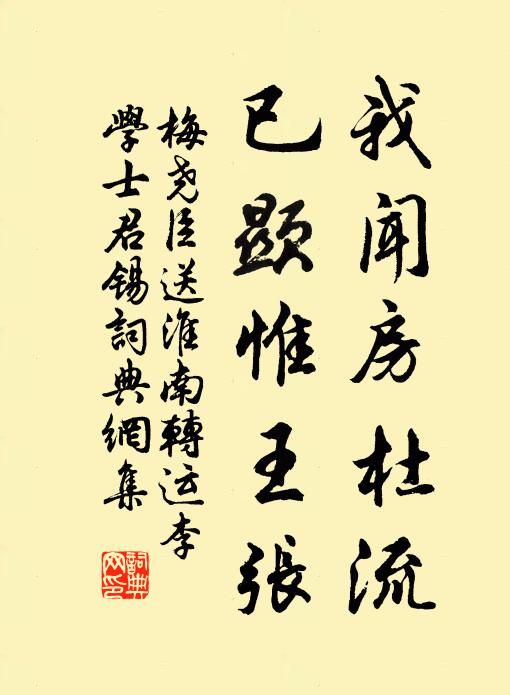 我闻房杜流
已顯惟王張
梅尧臣送淮南轉运李
學士君錫詞典網集
詞典
网印